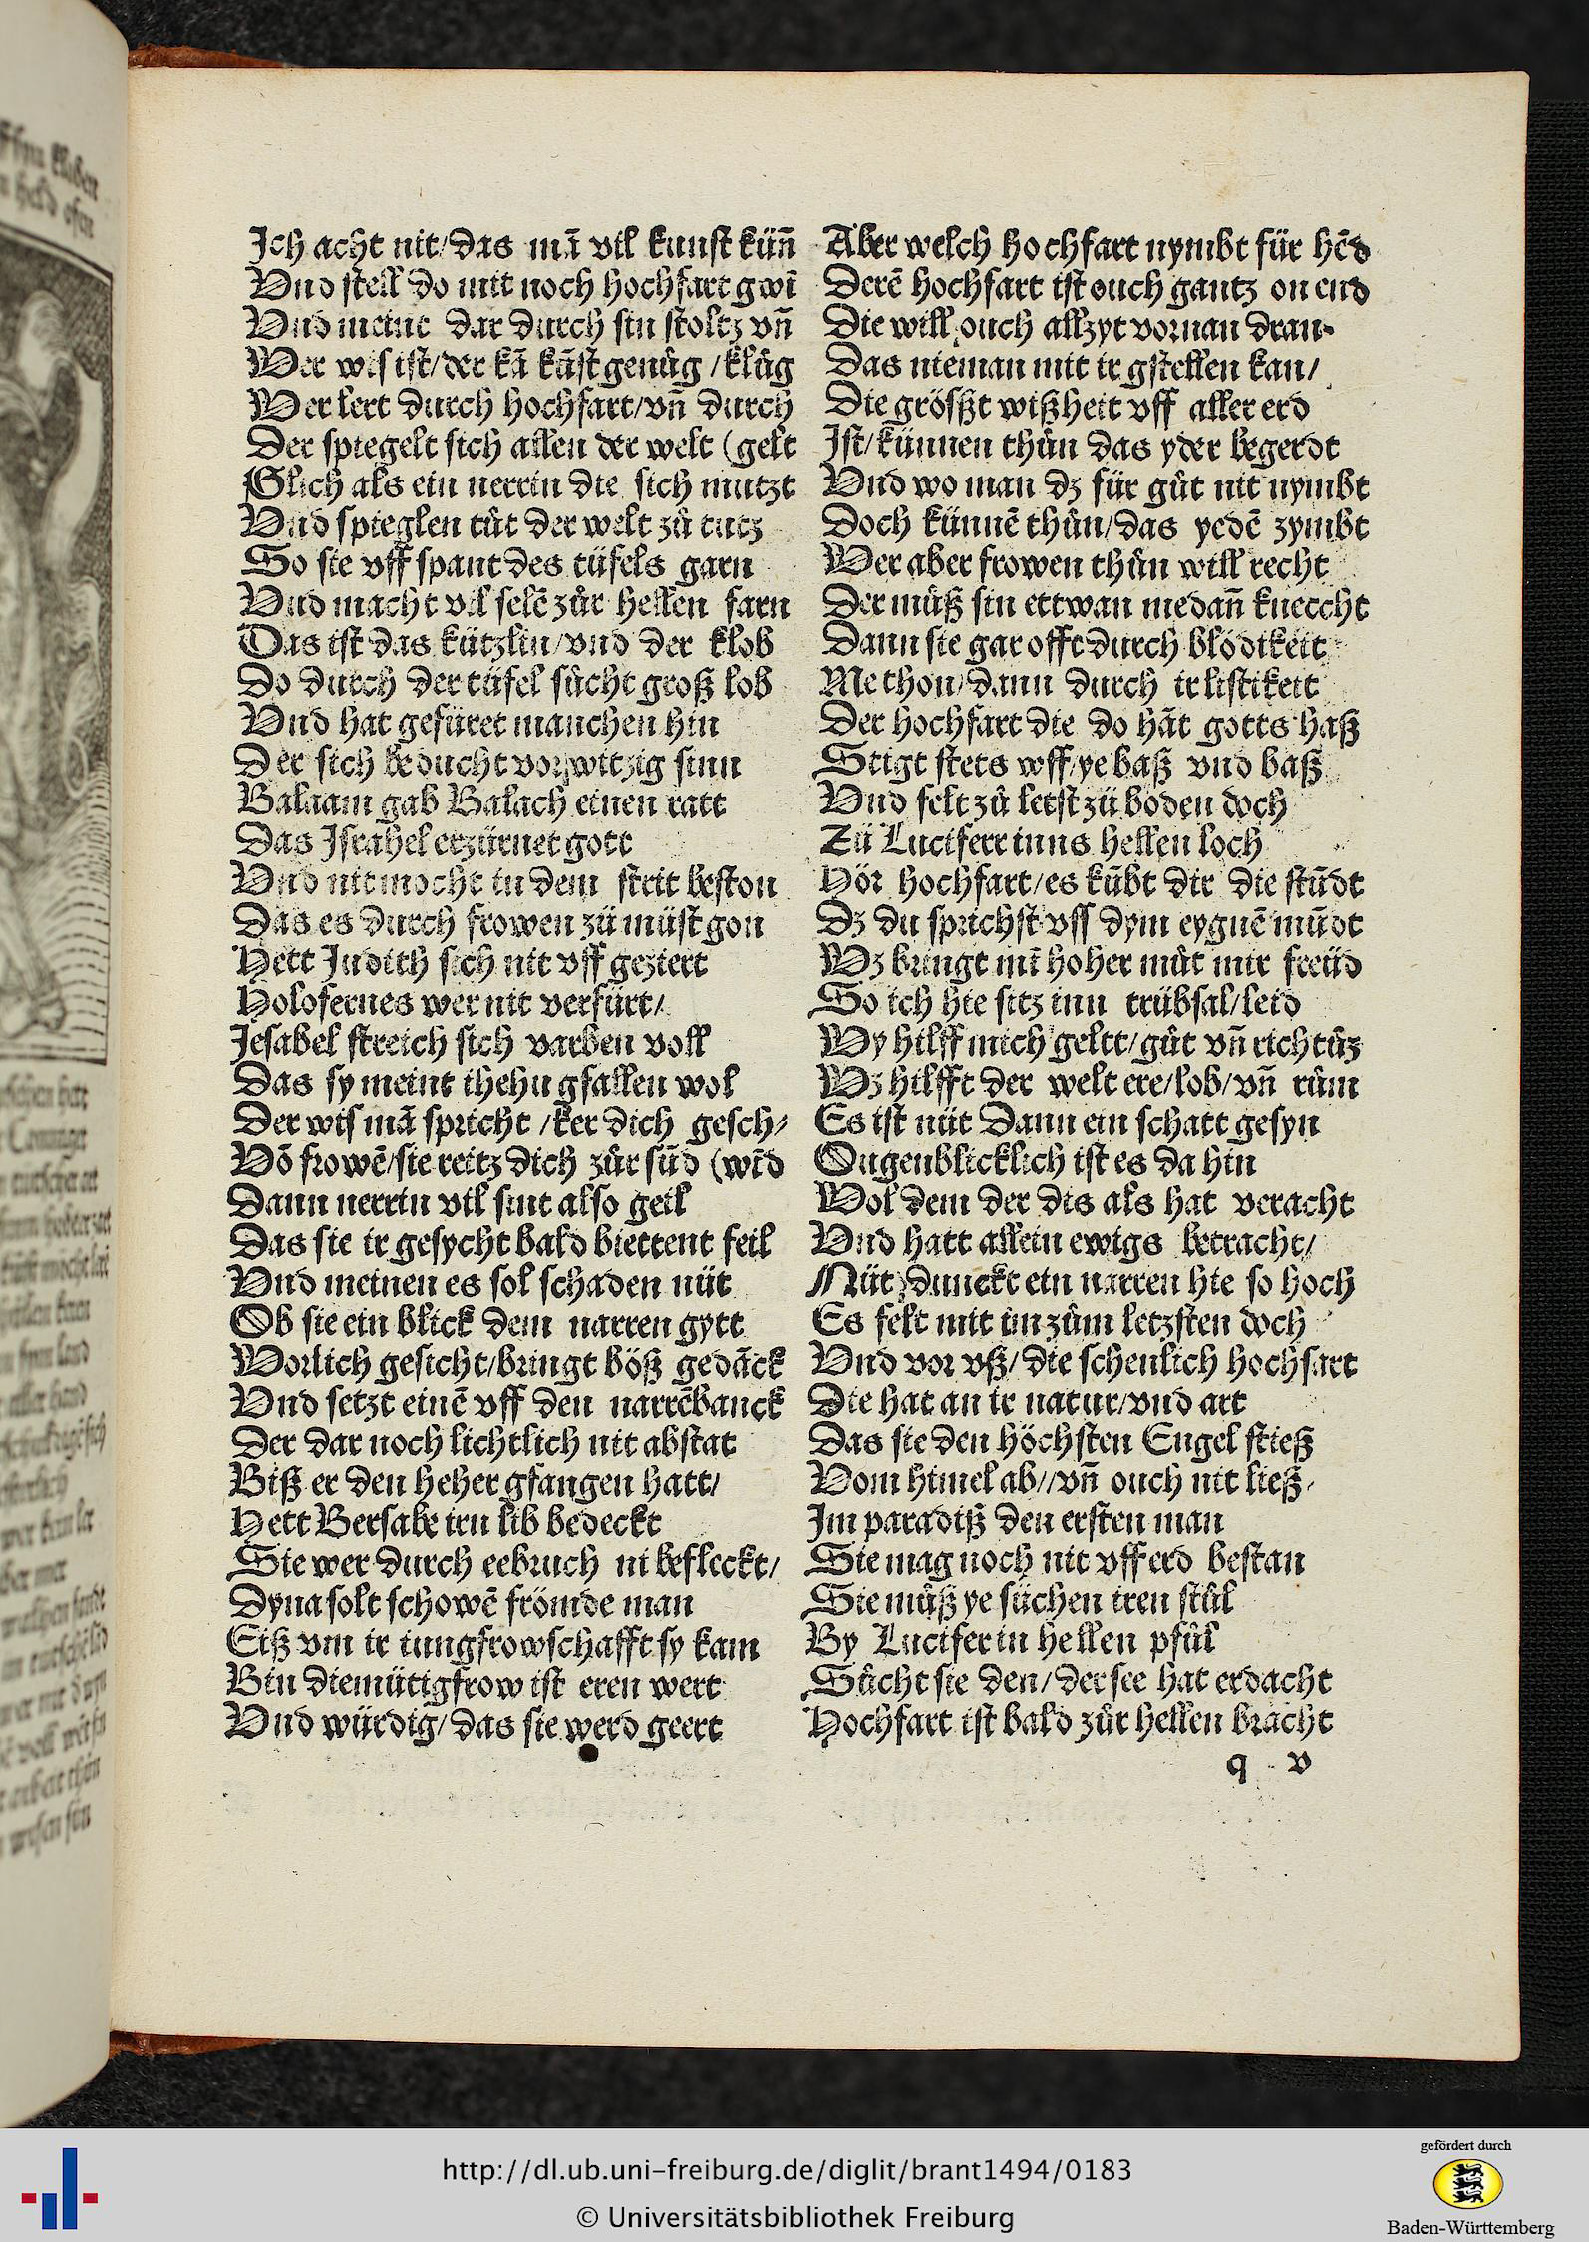 Jch acht nit/das mā vil kunst künn̄
Vnd stell do mit noch hochfart gwī
Vnd meine dar durch sin stoltz vn̄
Wer wis ist/der kā kūst genůg /klůg
Wer lert durch hochfart/vn̄ durch
Der spiegelt sich allen der welt (gelt
Glich als ein nerrin die sich mutzt
Vnd spieglen tůt der welt zů tutz
So sie vff spant des tüfels garn
Vnd macht vil selē zůr hellen farn
Das ist das kützlin/vnd der klob
Do durch der tüfel sůcht groß lob
Vnd hat gefüret manchen hin
Der sich beducht vor witzig sinn
Balaam gab Balach einen ratt
Das Jsrahel erzürnet gott
Vnd nit mocht in dem strit beston
Das es durch frowen zü müst gon
Hett Judith sich nit vff geziert
Holofernes wer nit verfürt/
Jesabel streich sich varben voll
Das sy meint ihehu gfallen wol
Der wis mā spricht /ker dich gesch/
Vō frowē/sie reitz dich zůr sün̄d (wīd
Dann nerrin vil sint also geil
Das sie ir gesycht bald biettent feil
Vnd meinen es sol schaden nüt
Ob sie ein blick dem narren gytt
Worlich gesicht/bringt böß gedāck
Vnd setzt einē vff den narrēbanck
Der dar noch lichtlich nit abstat
Biß er den heher gfangen hatt/
Hett Bersabe iren lib bedeckt
Sie wer durch eebruch ni befleckt/
Dyna solt schowē frömde man
Eiß vm ir iungfrowschafft sy kam
Ein diemütig frow ist eren wert
Vnd würdig/das sie werd geert
Aber welch hochfart nymbt für hēd
Derē hochfart ist ouch gantz on end
Die will ouch allzyt vornan dran
Das nieman mit ir gstellen kan/
Die größzt wißheit vff aller erd
Jst/künnen thůn das yder begerdt
Vnd wo man dz für gůt nit nymbt
Doch künnē thůn/das yedē zymbt
Wer aber frowen thůn will recht
Der můß sin ettwan medan̄ kneccht
Dann sie gar offt durch blödikeit
Me thon/dann durch ir listikeit
Der hochfart die do hāt gotts haß
Stigt stets vff/ye baß vnd baß
Vnd felt zů letst zü boden doch
Zü Luciferr inns hellen loch
Hör hochfart/es kūbt dir die stūdt
Dz du sprichst vss dym eygnē mūdt
Wz bringt mī hoher můt mir freüd
So ich hie sitz inn trübsal/leid
Wy hilff mich geltt/gůt vn̄ richtůz
Wz hilfft der welt ere/lob/vn̄ rům
Es ist nüt Dann ein schatt gesyn
Ougenblicklich ist es da hin
Wol dem der dis als hat veracht
Vnd hatt allein ewigs betracht/
Nüt dunckt ein narren hie so hoch
Es felt mitt im zům letzsten doch
Vnd vor vß/die schenlich hochfart
Die hat an ir natur/vnd art
Das sie den höchsten Engel stieß
Vom himel ab//vn̄ ouch nit ließ
Jm paradiß den ersten man
Sie mag noch nit vff erd bestan
Sie můß ye sůchen iren stůl
By Lucifer in hellen pfůl
Sůcht sie den/der see hat erdacht
Hochfart ist bald zůr hellen bracht
q v
http://dl.ub.uni-freiburg.de/diglit/brant1494/0183
© Universitätsbibliothek Freiburg
gefördert durch
Baden-Württemberg